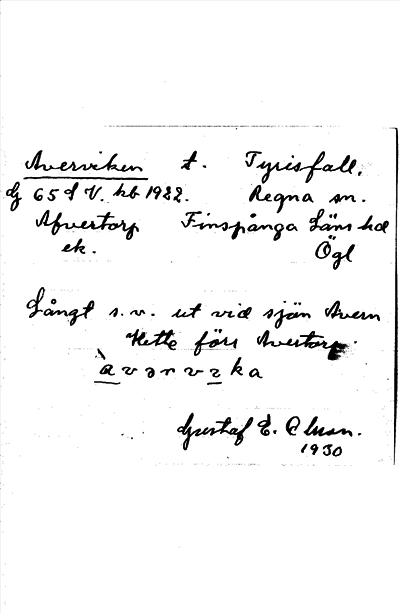 Averviken t. Tyrisfall,
dj 65 d V. kb 1922. Regna sn.
Afvertorp Finspånga Läns hd
ek. Ögl
Långt s.v. ut vid sjön Avern
Hette förr Avertorp.
àvərvɩka
Gustaf E. Olson.
1930